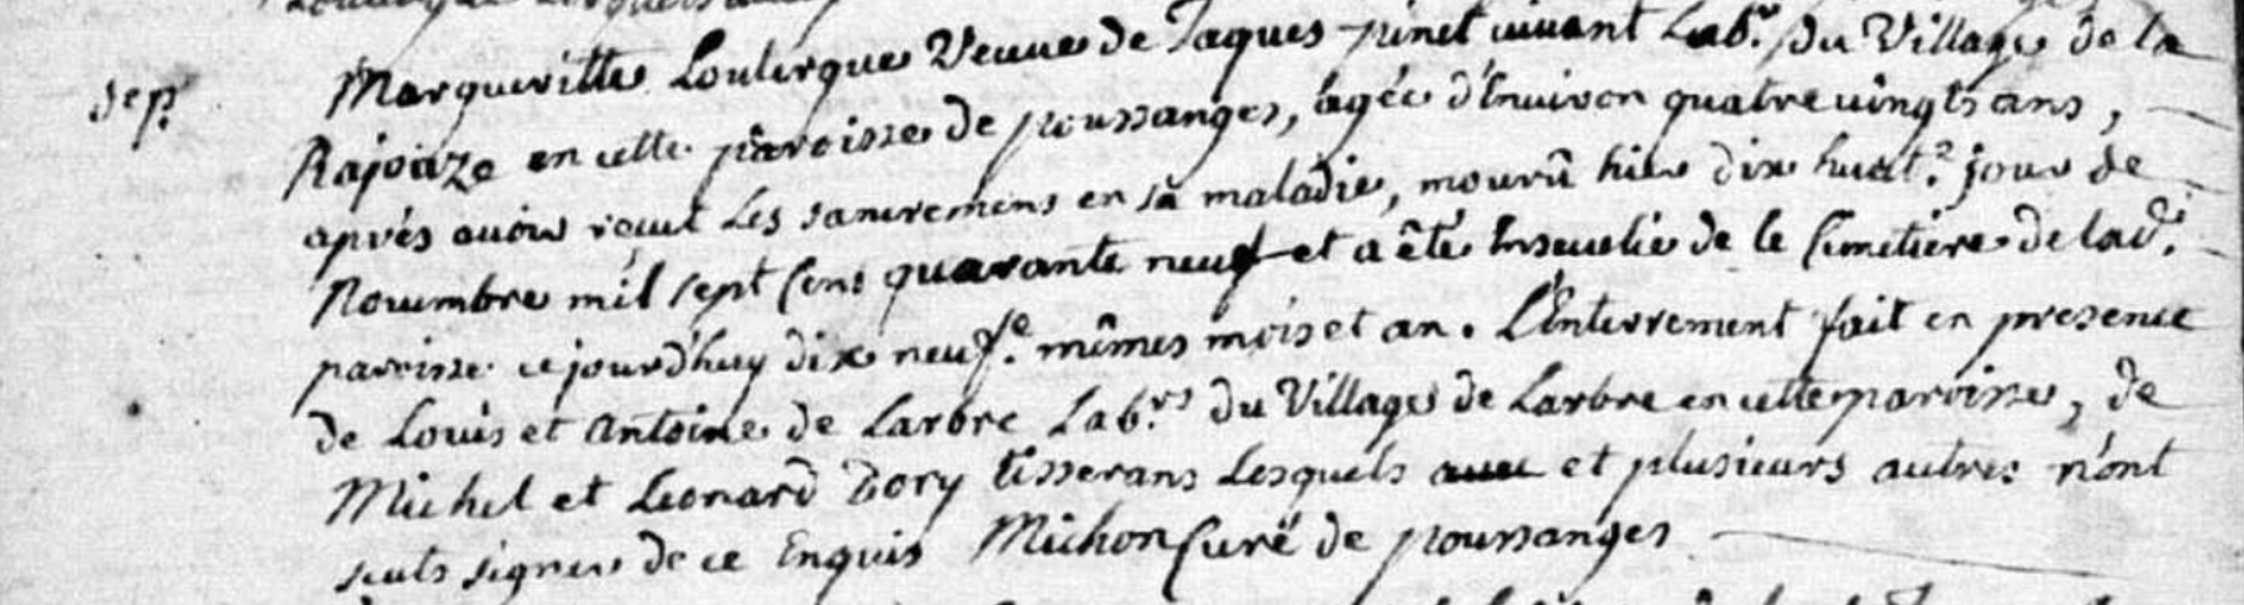 Sep.
Margueritte Loulergue Veuve de Jaques pinet vivant Lab.r du Village de la
Rajoaze en cette paroisse de poussanges, agée d'Environ quatre vingts ans,
après avoir reçut Les sacremens en sa maladie, mourû hier dix huit.e jour de
Novembre mil sept Cens quarante neuf et a êté Ensevelie de le Cimetiere de lad.e
paroisse ce jourd'huy dix neuf.e mêmes mois et an. L'Enterrement fait en presence
de Louis et Antoine de Larbre Lab.rs du Village de Larbre en cette paroisse, de
Michel et Leonard Dory tisserans Lesquels et plusieurs autres n'ont
sceuts signer de ce Enquis Michon Curé de poussanges